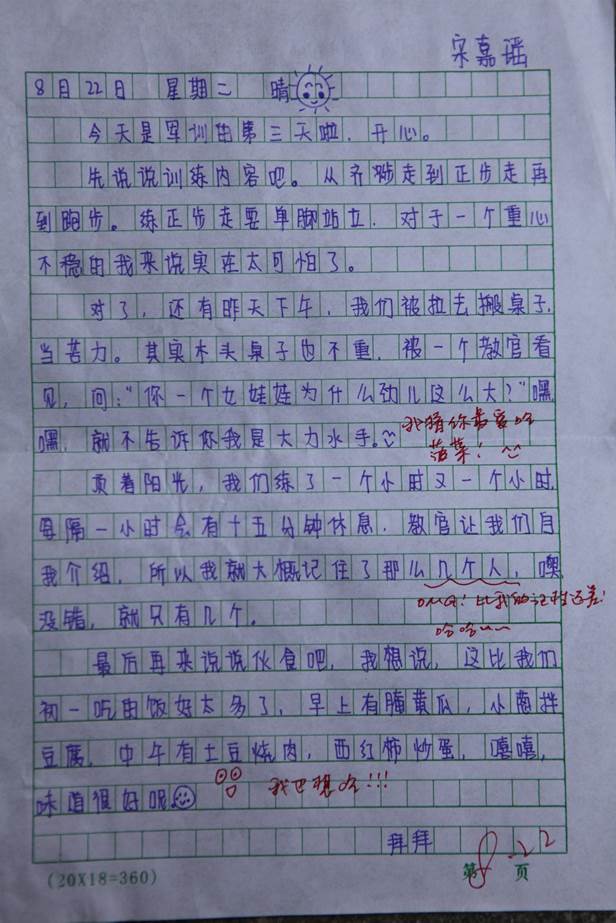 宋嘉瑶
8月22日 星期二 晴
今天是军训的第三天啦，开心。
先说说训练内容吧。从齐步走到正步走再
到跑步。练正步走要单脚站立，对于一个重心
不稳的我来说实在太可怕了。
对了，还有昨天下午，我们被拉去搬桌子，
当苦力。其实木头桌子也不重，被一个教官看
见，问：“你一个女娃娃为什么劲儿这么大？”嘿
嘿，就不告诉你我是大力水手。
我猜你最爱吃
菠菜！
顶着阳光，我们练了一个小时又一个小时，
每隔一小时会有十五分钟休息，教官让我们自
我介绍，所以我就大概记住了那么几个人，噢，
没错，就只有几个。
OMG！比我的记性还差！
哈哈~~
最后再来说说伙食吧，我想说，这比我们
初一吃的饭好太多了，早上有腌黄瓜，小葱拌
豆腐，中午有土豆烧肉，西红柿炒蛋，嘻嘻，
味道很好呢
我也想吃!!!
拜拜
8.22
第 页
(20X18=360)